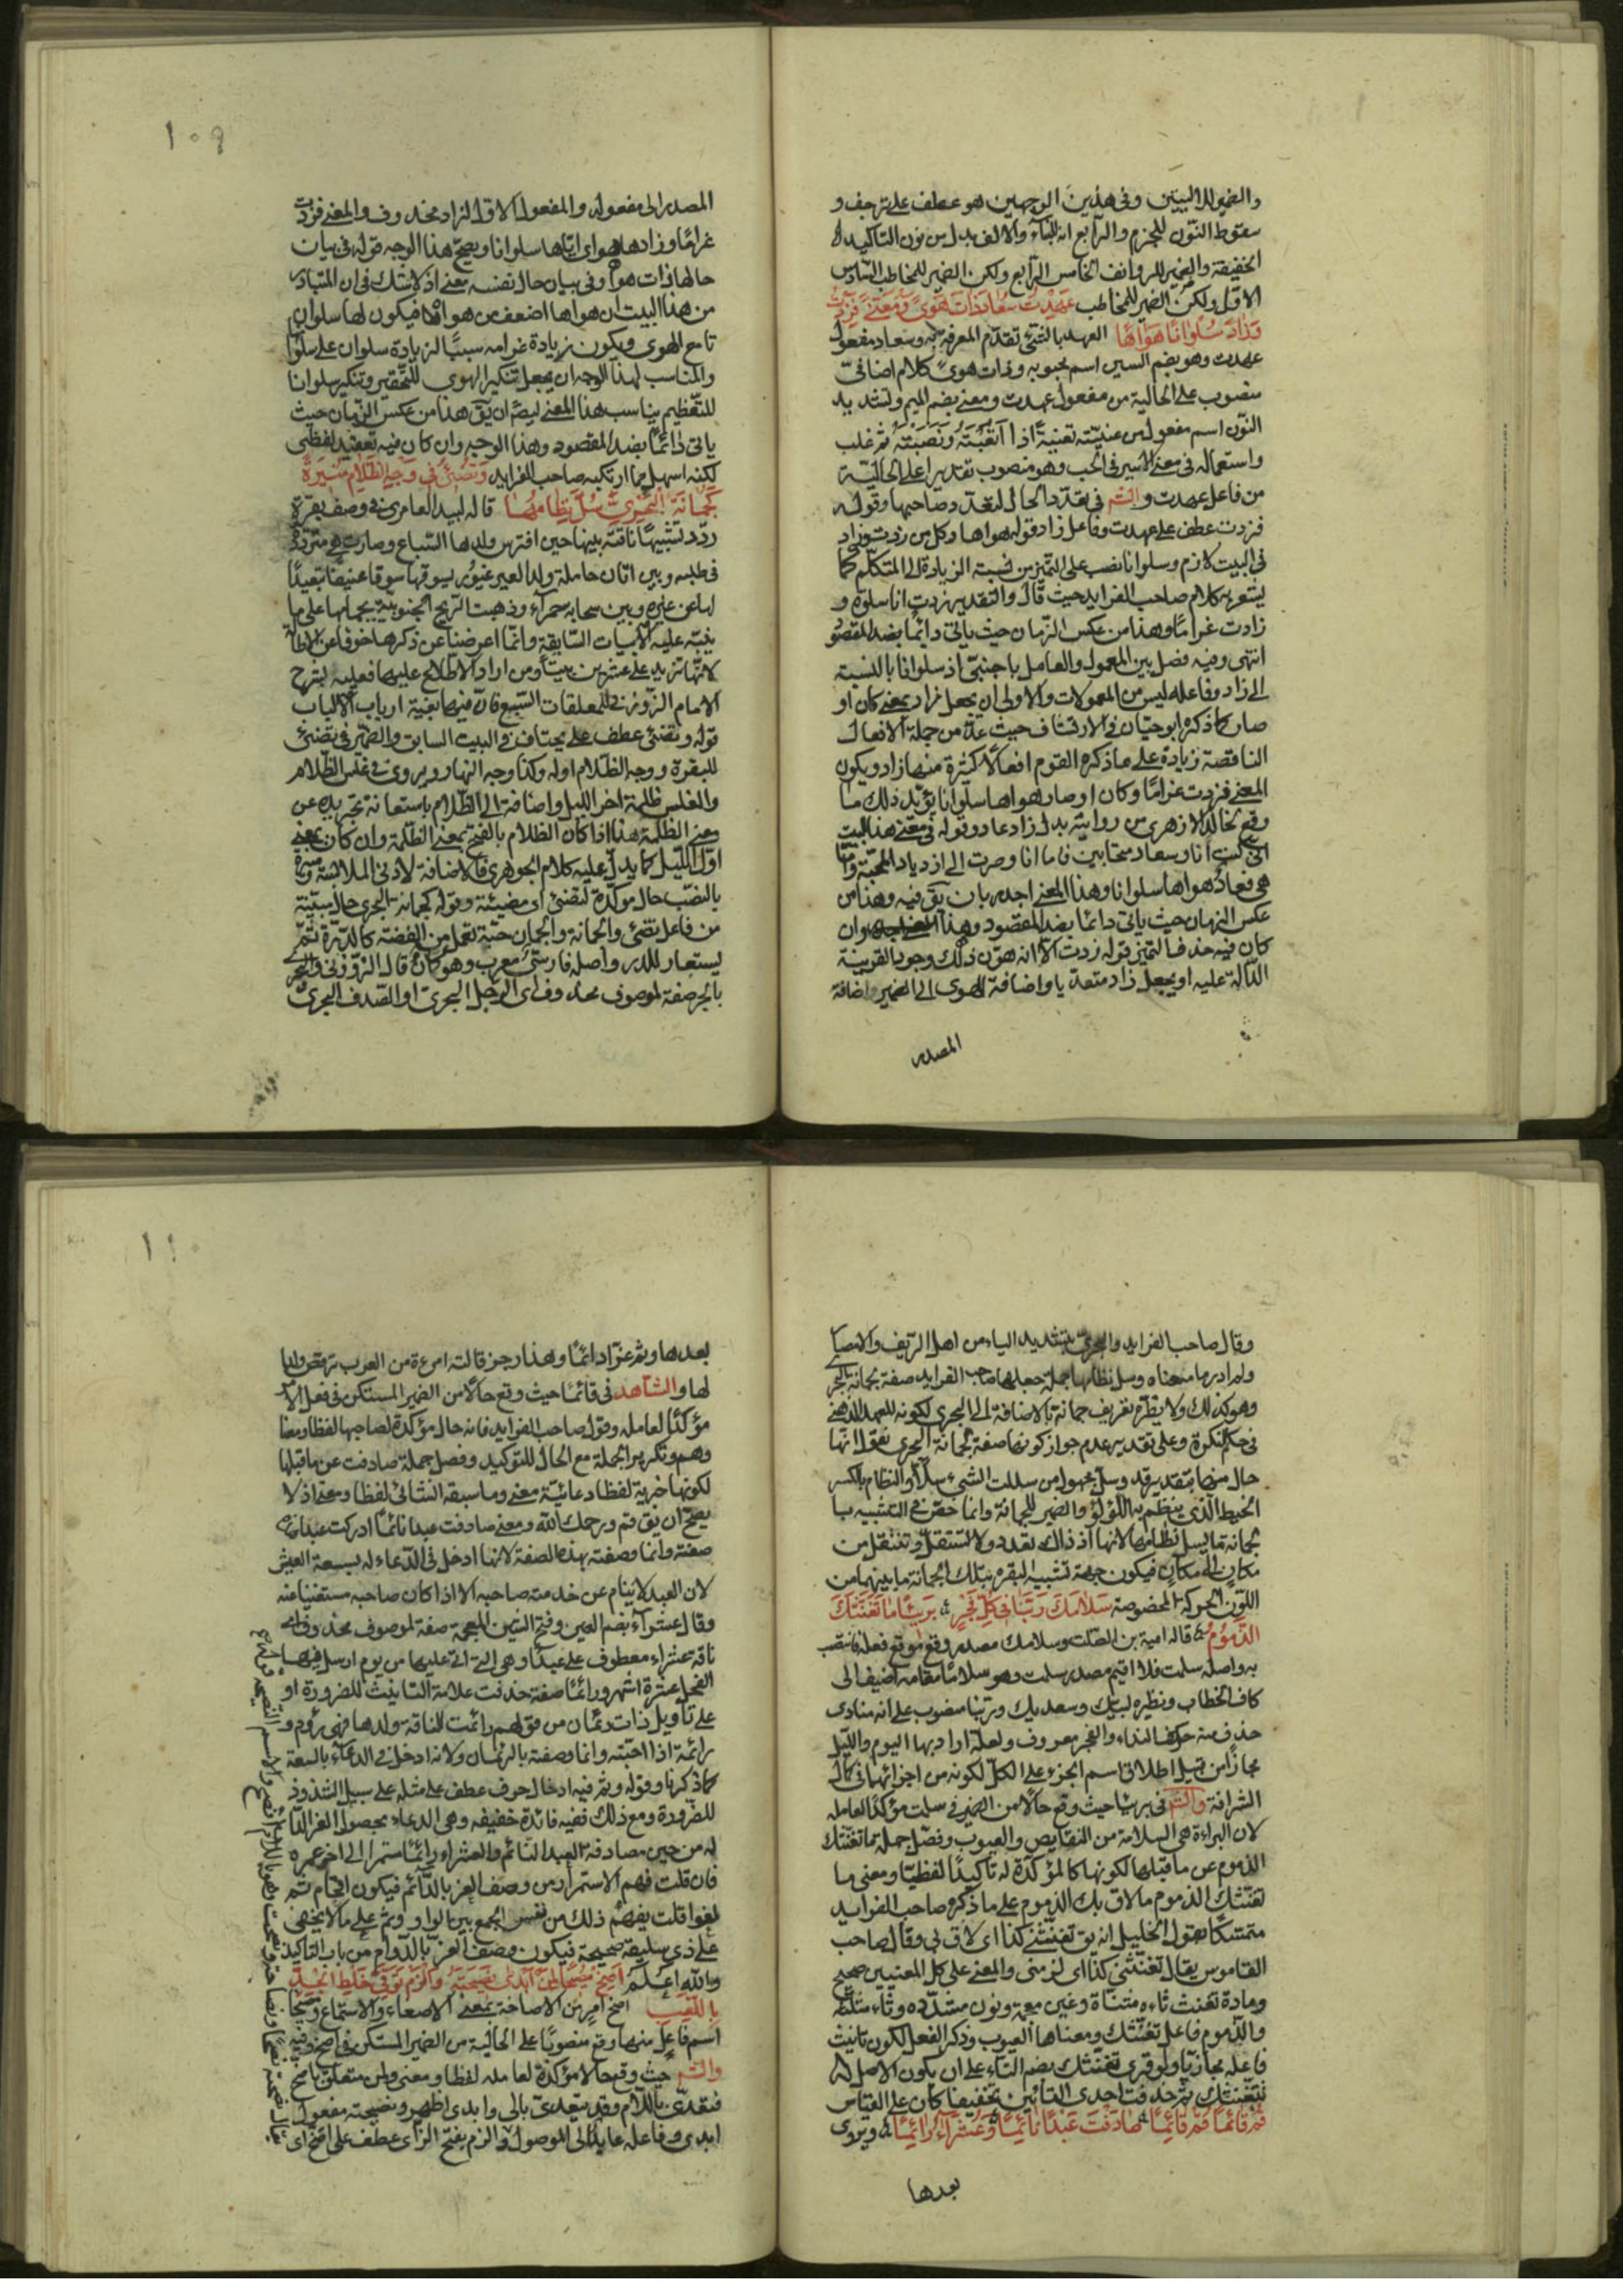 والضمير للاليتين وفى هذين الوجهين هو عطف على ترجف و
سقوط النون للجزم والرابع انه للتاء والالف بدل من نون التاكيد
الخفيفة والضمير للروانف الخامس الرابع ولكن الضمير للمخاطب السادس
الاول ولكن الضمير للمخاطب عهدت سعاد ذات هوى معنى فزدت
وزاد سلوانا هواها العهد بالشئ تقدم المعرفة به وسعاد مفعول
عهدت وهو بضم السين اسم محبوبه وذات هوى كلام اضافى
منصوب على الحالية من مفعول عهدت ومعنى بضم الميم وتشديد
النون اسم مفعول من عنيته تعنية اذا اتعبته ونصبته ثم غلب
واستعماله فى معنى الاسير فى الحب وهو منصوب تقديرا على الحالية
من فاعل عهدت والشم فى تعدد الحال لتعدد صاحبها وقوله
فزدت عطف على عهدت وفاعل زاد قوله هواها وكل من زدت وزاد
فى البيت لازم وسلوانا نصب على التميز من نسبة الزيادة الى المتكلم كما
يشعر به كلام صاحب الفرايد حيث قال والتقدير زدت انا سلوة و
زادت غراما وهذا من عكس الزمان حيث ياتى دائما بضد المقصود
انتهى وفيه فصل بين المعمول والعامل باجنبى اذ سلوانا بالنسبة
الى زاد وفاعله ليس من المعمولات والاولى ان يجعل زاد بمعنى كان او
صار كما ذكره ابو حيان فى الارتشاف حيث عد من جملة الافعال
الناقصة زيادة على ما ذكره القوم افعالا كثيرة منها زاد ويكون
المعنى فزدت غراما وكان او صار هواها سلوانا يؤيد ذلك ما
وقع لخالد الازهرى من رواية بدل زاد عاد وقوله فى معنى هذا البيت
انى كنت انا وسعاد متحابين فاما انا وصرت الى ازدياد المحبة واما
هى فعاد هواها سلوانا وهذا المعنى اجدر بان يق فيه وهذا من
عكس الزمان حيث ياتى دائما بضد المقصود وهذا وان
كان فيه حذف التميز قوله زدت الا انه هون ذلك وجود القرينة
الدالة عليه او يجعل زاد متعديا واضافة الهوى الى الضمير واضافة
المصدر
١٠٩
المصدر الى مفعوله والمفعول الاول لزاد محذوف والمعنى فزدت
غراما وزادها هواى اياها سلوانا ويصحح هذا الوجه قوله فى بيان
حالها ذات هوا وفى بيان حال نفسه معنى اذ لا شك فى ان المتبادر
من هذا البيت ان هواها اضعف من هواه فيكون لها سلوان
تا مع الهوى ويكون زيادة غرامه سببا لزيادة سلوان على سلوا
والمناسب لهذا الوجه ان يجعل تنكير الهوى للتحقير وتنكير سلوانا
للتعظيم يناسب هذا المعنى ايضا ان يق هذا من عكس الزمان حيث
ياتى دائما بضد المقصود وهذا الوجه وان كان فيه تعقيد لفظى
لكنه اسهل مما ارتكبه صاحب الفرايد وتضئ فى وجه الظلام منيرة
كجمانة البحرى سل نظامها قاله لبيد العامرى فى وصف بقرة
ردد تشبيها ناقته بينها حين افترس ولدها السباع وصارت هى مترددة
فى طلبه وبين اتان حاملة ولد العير غيور يسوقها سوقا عنيفا تبعيدا
لها عن غيره وبين سحابة حمرآء وذهبت الريح الجنوبية بجهامها على ما
ينبه عليه الابيات السابقة وانما اعرضنا عن ذكرها خوفا عن الاطالة
لانها تزيد على عشرين بيتا ومن اراد الاطلاع عليها فعليه بشرح
الامام الزوزنى للمعلقات السبع فان فيها بغية ارباب الالباب
قوله وتضئ عطف على يجتاف فى البيت السابق والضمير فى تضئ
للبقرة ووجه الظلام اوله وكذا وجه النهار ويروى فى غلس الظلام
والغلس ظلمة اخر الليل واضافة الى الظلام باستعانة تجريده عن
معنى الظلمة هذا اذا كان الظلام بالفتح بمعنى الظلمة وان كان بمعنى
اول الليل كما يدل عليه كلام الجوهرى فالاضافة لادنى الملابسة ومنيرة
بالنصب حال مؤكدة لتضئ اى مضيئة وقوله كجمانة البحرى حال مبينة
من فاعل تضئ والجمانة والجمان حبة تعمل من الفضة كالدرة ثم
يستعار للدر واصله فارسى معرب وهو كمان قال الزوزنى والبحرى
بالجر صفة لموصوف محذوف اى الرجل البحرى او الصدف البحرى
وقال صاحب الفرايد والبحرى بتشديد الياء من اهل الريف والامصار
ولم ادر ما معناه وسل نظامها جملة جعلها صاحب الفرايد صفة لجمانة البحر
وهو كذلك ولا يظره تعريف جمانة بالاضافة الى البحرى لكونه للعهد الذهنى
فى حكم النكرة وعلى تقدير عدم جواز كونها صفة لجمانة البحرى نقول انها
حال منها بتقدير قد وسل مجهول من سللت الشئ سلا والنظام بالكسر
الخيط الذى ينظم به اللؤلؤ والضمير للجمانة وانما خص فى التشبيه با
لجمانة بما يسل نظامها لانها اذ ذاك تعدو ولا تستقل وتنتقل من
مكان الى مكان فيكون جهة تشبيه البقرة بتلك الجمانة ما بينهما من
اللون الحركة المخصوصة سلامك ربنا فى كل فجر بريئا ما تغنثك
الذموم قاله امية بن الصلت وسلامك مصدر وقع موقع فعله فانتصب
به واصله سلمت فلما اقيم مصدر سلمت وهو سلاما مقامه اضيف الى
كاف الخطاب ونظيره لبيك وسعديك وربنا منصوب على انه منادى
حذف منه حرف النداء والفجر معروف ولعله اراد بها اليوم والليل
مجازا من قبيل اطلاق اسم الجزء على الكل لكونه من اجزائها فى كمال
الشرافة والشم فى بريئا حيث وقع حالا من الضمير فى سلمت مؤكدا لعامله
لان البراءة هى السلامة من النقايص والعيوب وفصل جملة ما تغنثك
الذموم عن ما قبلها لكونها كالمؤكدة له تاكيدا لفظيا ومعنى ما
تغنثك الذموم ما لاق بك الذموم على ما ذكره صاحب الفرايد
متمسكا بقول الخليل انه يق تغنثنى كذا اى لاق بى وقال صاحب
القاموس يقال تغنثنى كذا اى لزمنى والمعنى على كل المعنيين صحيح
ومادة تغنث ثاء مثناة وغين معجمة ونون مشدده وثاء مثلثه
والذموم فاعل تغنثك ومعناها العيوب وذكر الفعل لكون تانيث
فاعله مجازيا ولو قرئ تغنثك بضم التاء على ان يكون الاصل له
تتغنثك ثم حذفت احدى التائين تخفيفا كان على القياس
قم قائما قم قائما صادفت عبدا نائما وعشراء رائما ويروى
بعدها
١١٠
بعدها وثم عنزا دائما وهذا رجز قالته امرءة من العرب ترقص ابنا
لها والشاهد فى قائما حيث وقع حالا من الضمير المستكن فى فعل الامر
مؤكدا لعامله وقول صاحب الفرايد فانه حال مؤكدة لصاحبها لفظا ومعنا
وهم وتكرير الجملة مع الحال للتوكيد وفصل جملة صادفت عن ما قبلها
لكونها خبرية لفظا دعائية معنى وما سبقه انشائى لفظا ومعنى اذ لا
يصح ان يق قم ورحمك الله ومعنى صادفت عبدا نائما ادركت عبدا
صفته وانما وصفته بهذه الصفة لانها ادخل فى الدعاء له بسعة العيش
لان العبد لا ينام عن خدمة صاحبه الا اذا كان صاحبه مستغنيا عنه
وقال عشرآء بضم العين وفتح الشين المعجمة صفة لموصوف محذوف اى
ناقة عشراء معطوف على عبدا وهى التى اتى عليها من يوم ارسل فيها
الفحل عشرة اشهر ورائما صفة حذفت علامة التانيث للضرورة او
على تاويل ذات رئمان من قولهم رائمت للناقة ولدها فهى رؤم و
رائمة اذا احبته وانما وصفته بالرئمان ولانه ادخل فى الدعآء بالسعة
كما ذكرنا وقوله وثم فيه ادخال حرف عطف على مثله على سبيل الشذوذ
للضرورة ومع ذلك ففيه فائدة خفيفه وهى الدعاء بحصول العز الدائم
له من حين مصادفة العبد النائم والعشراء رائما مستمرا الى اخر عمره
فان قلت فهم الاستمرار من وصف العز بالدائم فيكون اقحام ثم
لغوا قلت يفهم ذلك من نفس الجمع بين الواو وثم على ما لا يخفى
على ذى سليقة صحيحة فيكون وصف العز بالدوام من باب التاكيد
والله اعلم اصخ مصيخا لمن ابدى نصيحته والزم توقى خلط الجد
باللعب اصخ امر من الاصاخة بمعنى الاصغاء والاستماع ومصيخا
اسم فاعل منها وقع منصوبا على الحالية من الضمير المستكن فى اصخ وفيه
والشم حيث وقع حالا مؤكدة لعامله لفظا ومعنى ولمن متعلق باصخ
فتعدى باللام وقد يتعدى بالى وابدى اظهر ونصيحته مفعول
ابدى وفاعله عايد الى الموصول والزم بفتح الزاى عطف على اصخ اى